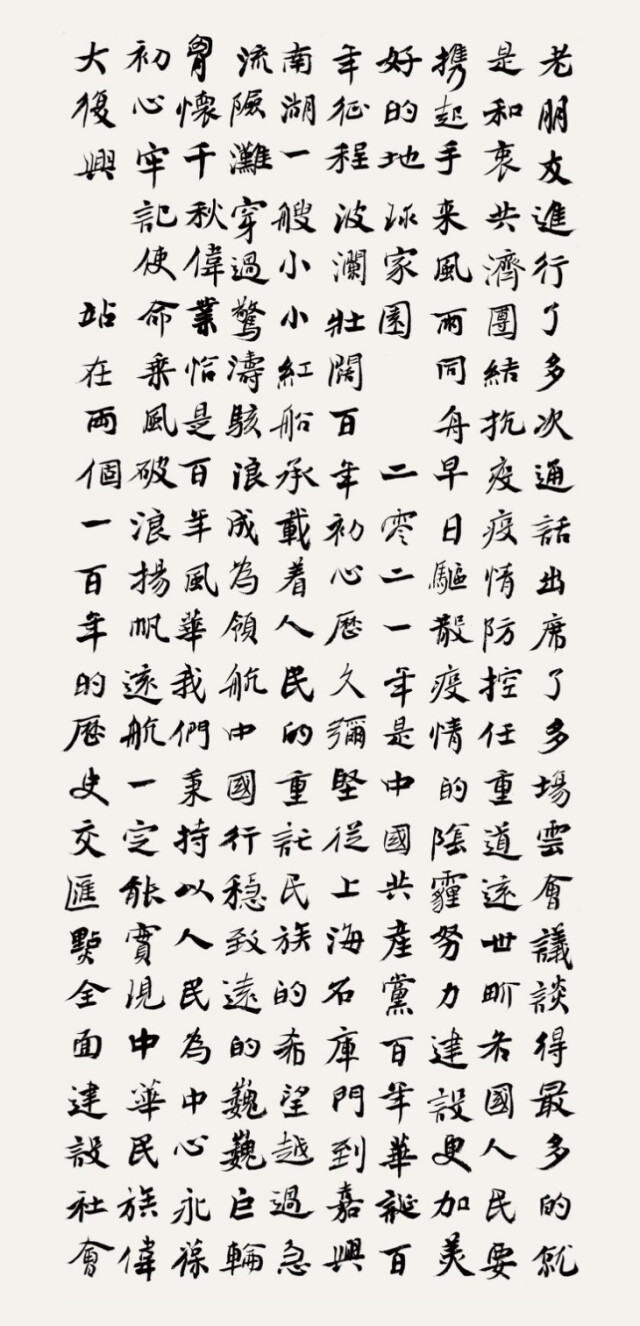 老朋友進行了多次通話出席了多場雲會議談得最多的就
是和衷共濟團結抗疫疫情防控任重道遠世界各國人民要
携起手来風雨同舟早日驅散疫情的陰霾努力建設更加美
好的地球家園 二零二一年是中國共産黨百年華誕百
年征程波瀾壯闊百年初心歷久彌堅從上海石庫門到嘉興
南湖一艘小小紅船承載着人民的重託民族的希望越過急
流險灘穿過驚濤駭浪成為領航中國行穩致遠的巍巍巨輪
胷懷千秋偉業恰是百年風華我們秉持以人民為中心永葆
初心牢記使命乘風破浪揚帆遠航一定能實現中華民族偉
大復興 站在兩個一百年的歷史交匯點全面建設社會